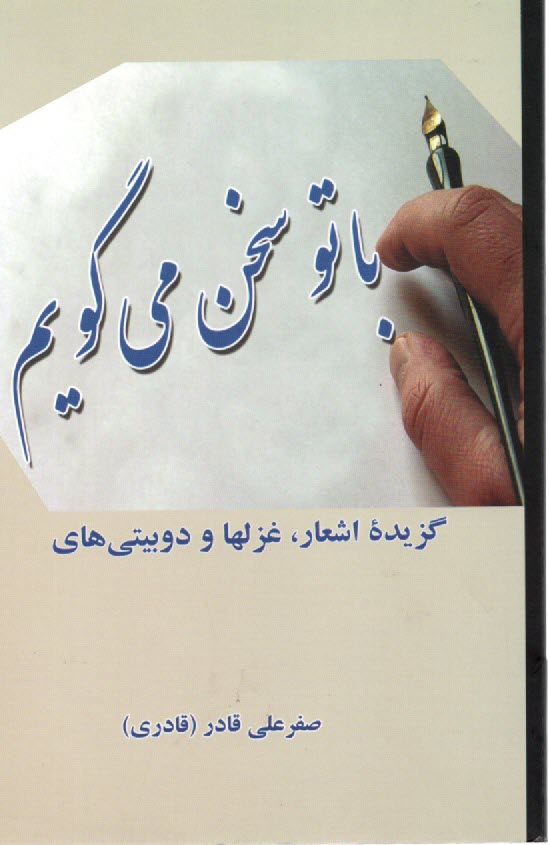 با تو سخن می گویم
گزیدهٔ اشعار، غزلها و دوبیتی‌های
صفرعلی قادر (قادری)